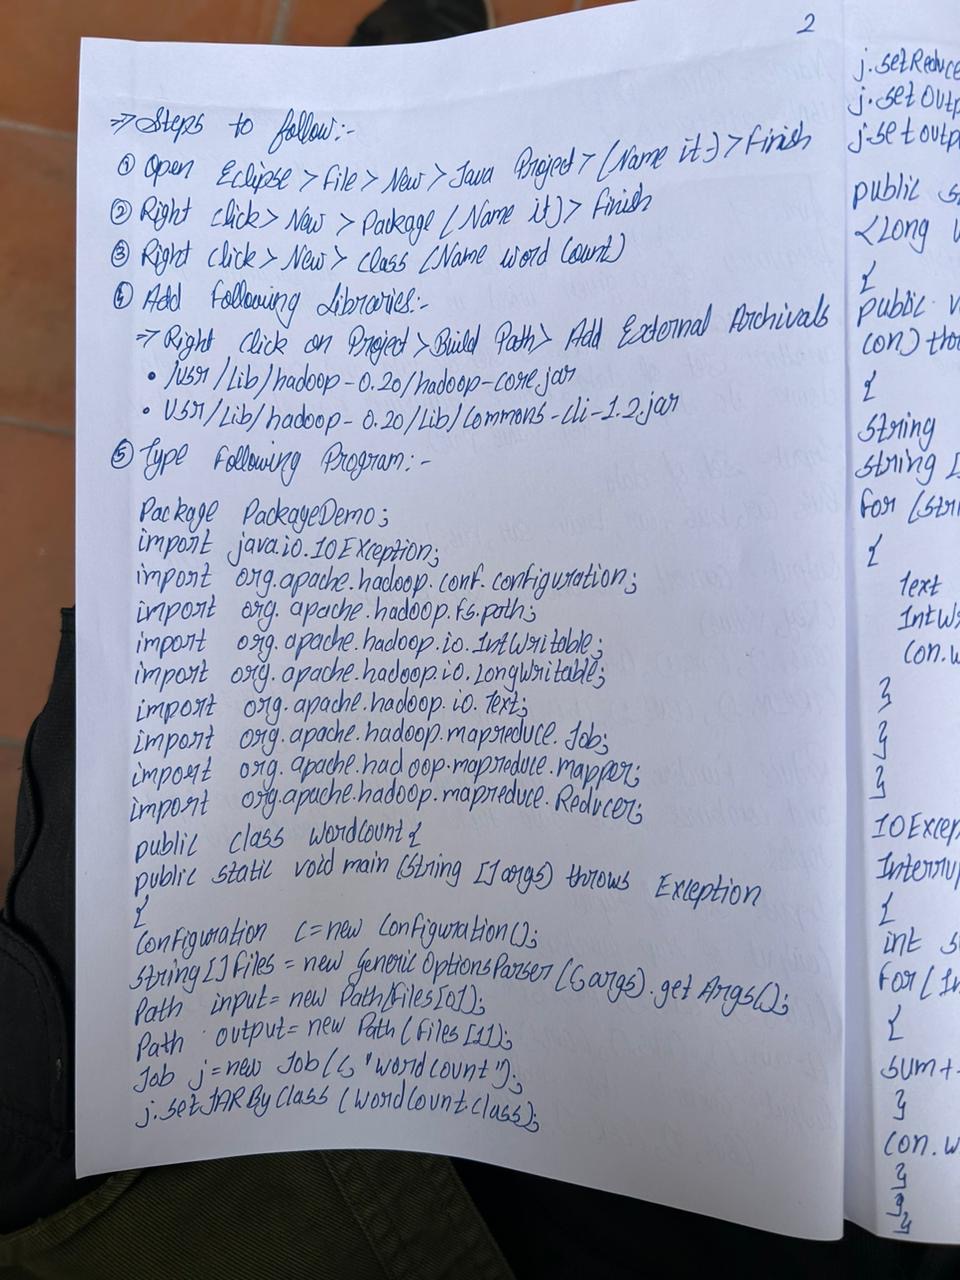 2
=> Steps to follow:-
① Open Eclipse > File > New > Java Project > (Name it) > Finish
② Right click > New > Package (Name it) > Finish
③ Right click > New > class (Name word Count)
④ Add following Libraries:-
=> Right click on Project > Build Path > Add External Archivals
• /usr/Lib/hadoop-0.20/hadoop-core.jar
• Usr/Lib/hadoop-0.20/Lib/Commons-cli-1.2.jar
⑤ Type following Program:-
Package PackageDemo;
import java.io.IOException;
import org.apache.hadoop.conf.configuration;
import org.apache.hadoop.fs.path;
import org.apache.hadoop.io.IntWritable;
import org.apache.hadoop.io.LongWritable;
import org.apache.hadoop.io.Text;
import org.apache.hadoop.mapreduce.Job;
import org.apache.hadoop.mapreduce.mapper;
import org.apache.hadoop.mapreduce.Reducer;
public class wordcount {
public static void main (String [] args) throws Exception
{
Configuration c = new Configuration();
String [] files = new generic OptionsParser (c, args).get Args();
Path input = new Path(files[0]);
Path output = new Path(files[1]);
Job j = new Job (c, "wordcount");
j.setJARByClass (wordCount.class);
j.setReduce
j.setOutp
j.setoutp
public s
<Long
{
public v
con) thro
{
string
string [
for (stri
{
Text
IntW
con.w
}
}
}
IOExcep
Interrup
{
int s
for (In
{
sum+
}
con.w
}
}
}